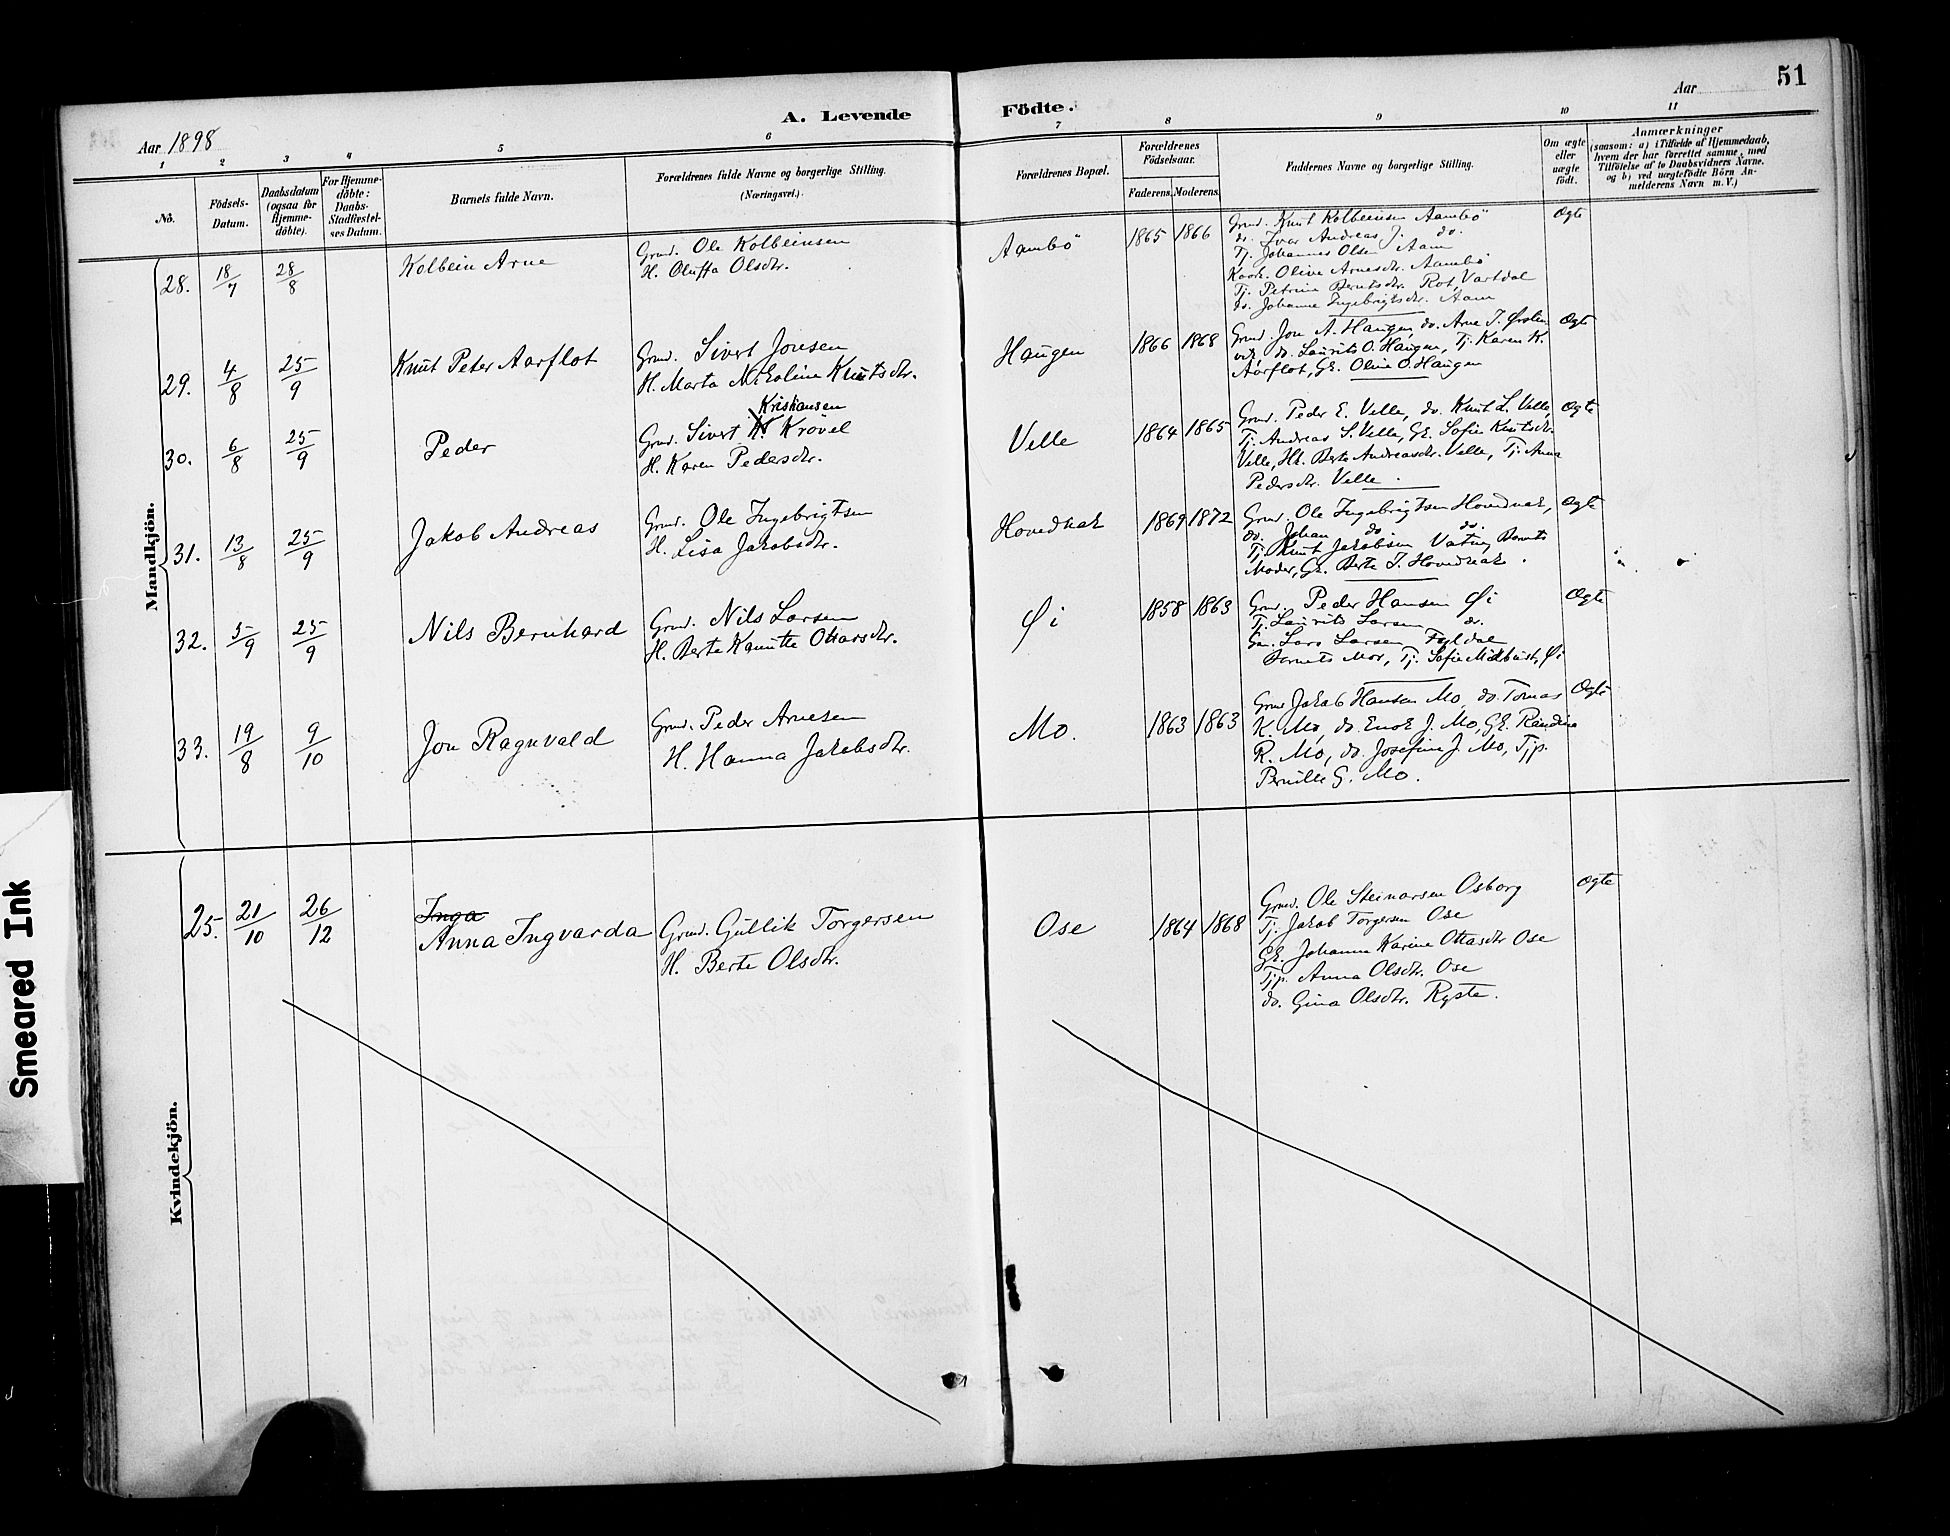 51
A. Levende Födte.
Aar 1898
Aar
1 2 3 4 5 6 7 8 9 10 11
No.
Födsels-
Datum.
Daabsdatum
(ogsaa for
Hjemme-
döbte).
For Hjemme-
döbte:
Daabs-
Stadfæstel-
ses Datum.
Barnets fulde Navn.
Forældrenes fulde Navne og borgerlige Stilling.
(Næringsvei).
Forældrenes Bopæl.
Forældrenes
Födselsaar.
Faderens. Moderens.
Faddernes Navne og borgerlige Stilling.
Om ægte
eller
uægte
födt.
Anmærkninger
(saasom: a) i Tilfælde af Hjemmedaab,
hvem der har forrettet samme, med
Tilföielse af to Daabsvidners Navne,
og b) ved uægtefödte Börn An-
melderens Navn m. V.)
Mandkjön.
28. 18/7 28/8 Kolbein Arne
Grmd. Ole Kolbeinsen
H. Oluffa Olsdtr.
Aambö 1865 1866
Grmd. Knut Kolbeinsen Aambö
do. Ivar Andreas J. do.
Tj. Johannes Olsen Aam
Kaark. Olive Arnesdtr. Aambö
Tj. Petrine Berntsdtr. Rot, Vartdal
do. Johanne Ingebrigtsdtr. Aam
Ægte
29. 4/8 25/9 Knut Peter Aarflot
Grmd. Sivert Jonsen
H. Marta Nikoline Knutsdtr.
Haugen 1866 1868
Grmd. Jon A. Haugen, do. Arne J. Ørsten-
vik, do. Laurits O. Haugen, Tj. Karen K.
Aarflot, Gk. Oline O. Haugen
Ægte
30. 6/8 25/9 Peder
Kristiansen
Grmd. Sivert K. Krøvel
H. Karen Pedersdtr.
Velle 1864 1865
Grmd. Peder E. Velle, do. Knut L. Velle,
Tj. Andreas S. Velle, Gk. Sofie Knutsdtr.
Velle, Hk. Berte Andreasdtr. Velle, Tj. Anna
Pedersdtr. Velle.
Ægte
31. 13/8 25/9 Jakob Andreas
Grmd. Ole Ingebrigtsen
H. Lisa Jakobsdtr.
Hovednak 1869 1872
Grmd. Ole Ingebrigtsen Hovednak,
do. Johan do do.
Tj. Knut Jakobsen Vatne, Barnets
Moder, Gk. Berte I. Hovednak.
Ægte
32. 5/9 25/9 Nils Bernhard
Grmd. Nils Larsen
H. Berte Kanutte Ottarsdtr.
Øi 1858 1863
Grmd. Peder Hansen Øi
Tj. Laurits Larsen do.
Gm. Lars Larsen
Barnets Mor, Tj. Sofie Mikbust, Øi
Ægte
33. 19/8 9/10 Jon Ragnvald
Grmd. Peder Arnesen
H. Hanna Jakobsdtr.
Mo. 1863 1863
Grmd Jakob Hansen Mo, do. Tomas
K. Mo, do. Enok J. Mo, Gk. Randine
R. Mo, do. Josefine J. Mo, Tjp.
Pernille G. Mo.
Ægte
Kvindekjön.
25. 21/10 26/12 Inga
Anna Ingvarda
Grmd. Gullik Torgersen
H. Berte Olsdtr.
Ose 1864 1868
Grmd. Ole Steinarsen Osborg
Tj. Jakob Torgersen Ose
Gk. Johanne Karine Ottasdtr Ose
Tjp. Anna Olsdtr. Ose
do. Gina Olsdtr. Ryste.
Ægte
Smeared Ink